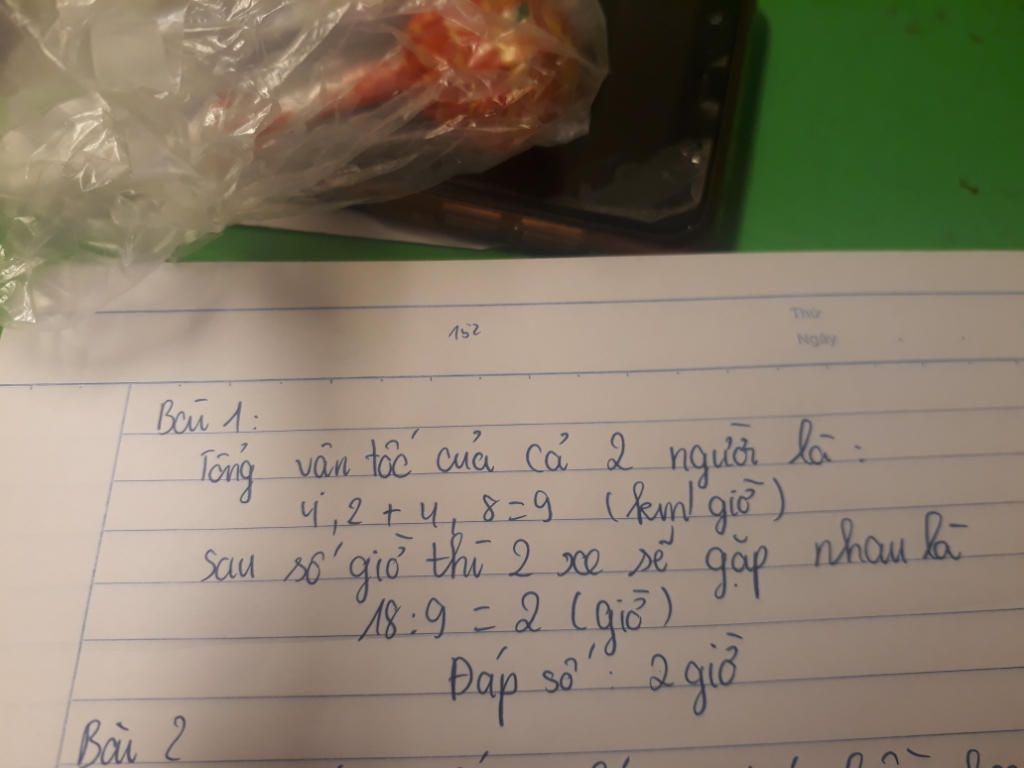 152
Thứ
Ngày
Bài 1:
Tổng vân tốc của cả 2 người là:
4,2 + 4,8=9 (km/giờ)
Sau số giờ thì 2 xe sẽ gặp nhau là
18:9 = 2 (giờ)
Đáp số: 2 giờ
Bài 2